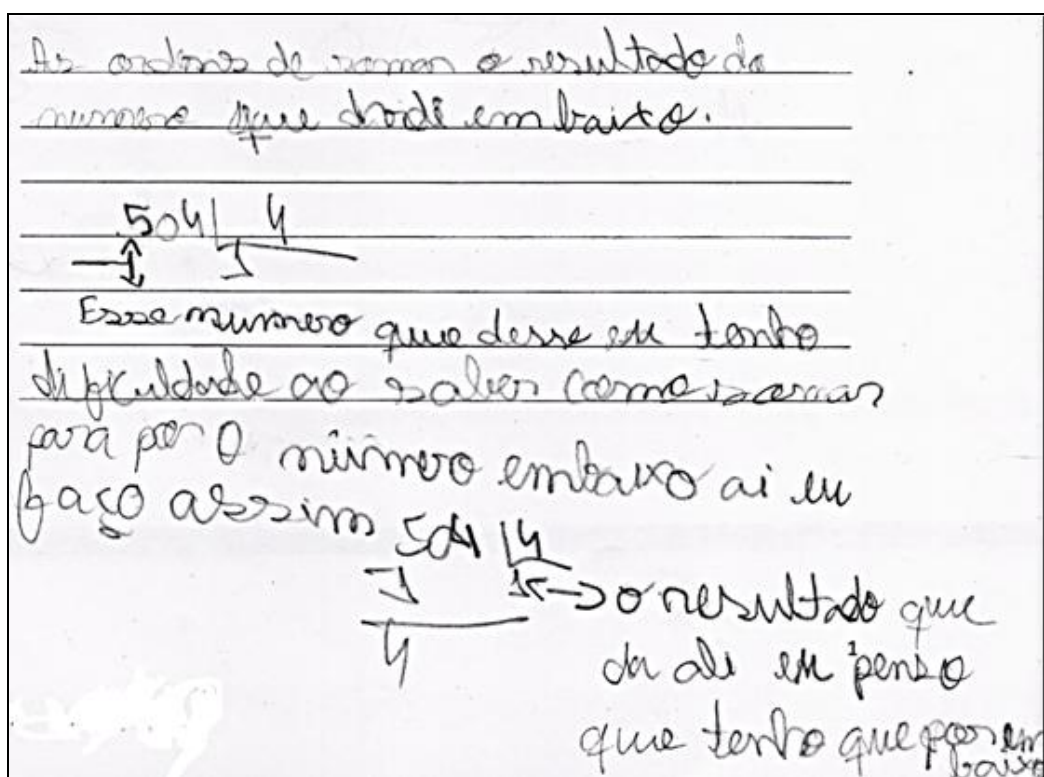 As ordens de somar o resultado do
numero que dividi em baixo.
504 | 4
1
Esse numero que desse eu tenho
dificuldade ao saber como somar
para por o número embaixo ai eu
faço assim 504 | 4
1 1 → o resultado que
4 da ali eu penso
que tenho que por em
baixo